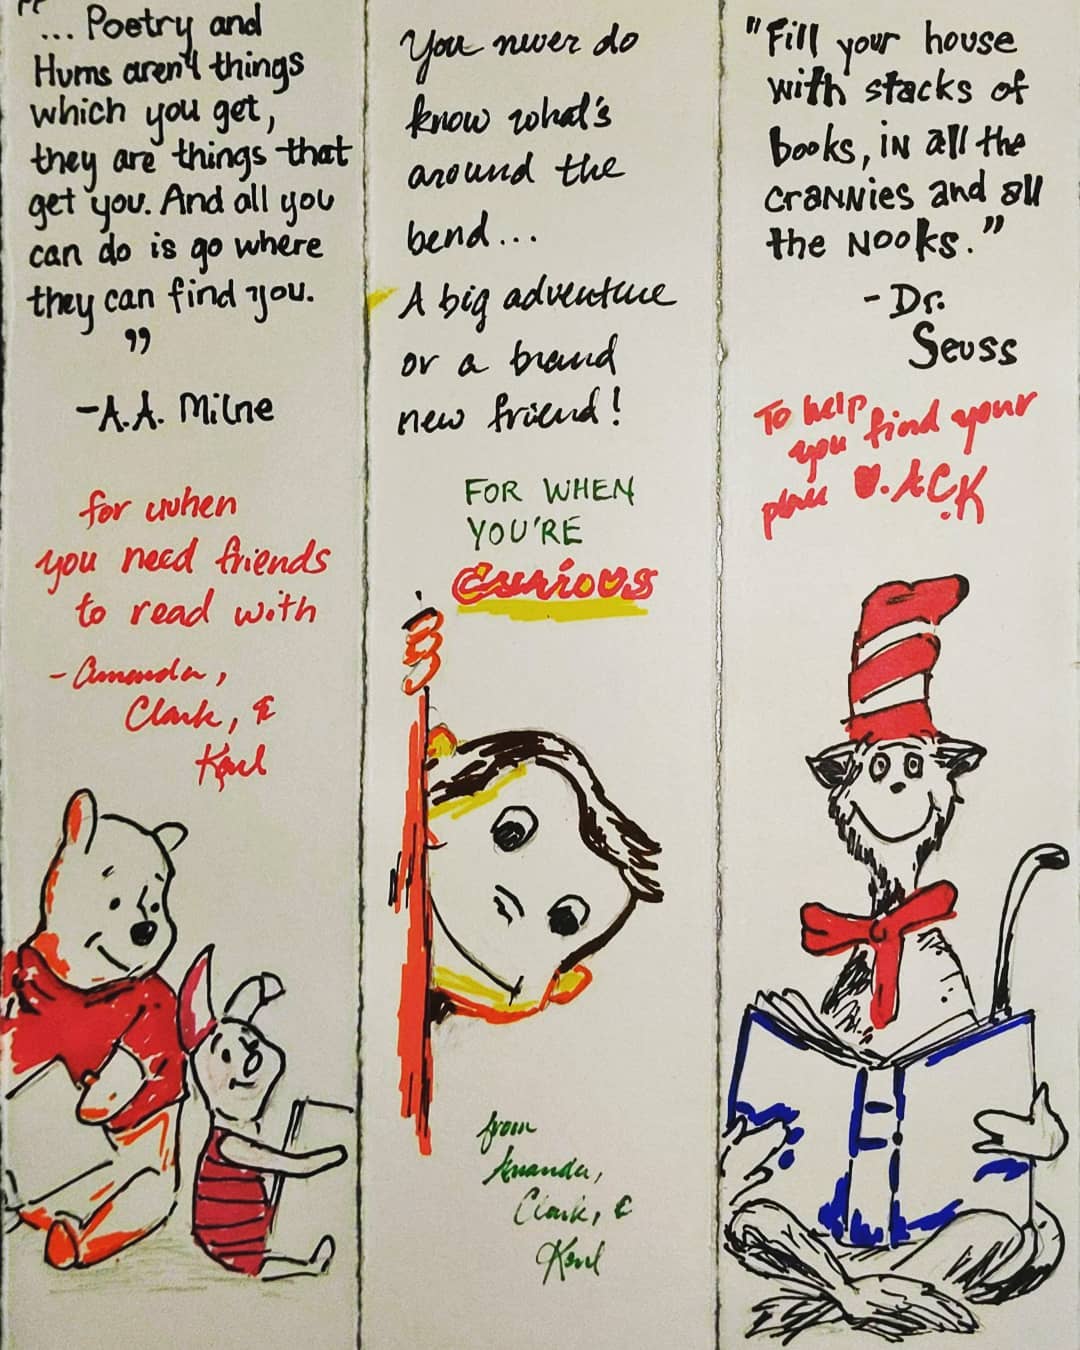 "... Poetry and
Hums aren't things
which you get,
they are things that
get you. And all you
can do is go where
they can find you.
"
-A.A. Milne
for when
you need friends
to read with
-Amanda,
Clark, &
Karl
You never do
know what's
around the
bend...
A big adventure
or a brand
new friend!
FOR WHEN
YOU'RE
Curious
from
Amanda,
Clark, &
Karl
"Fill your house
with stacks of
books, in all the
crannies and all
the Nooks."
- Dr.
Seuss
To help
you find your
place ♥. A.C.K